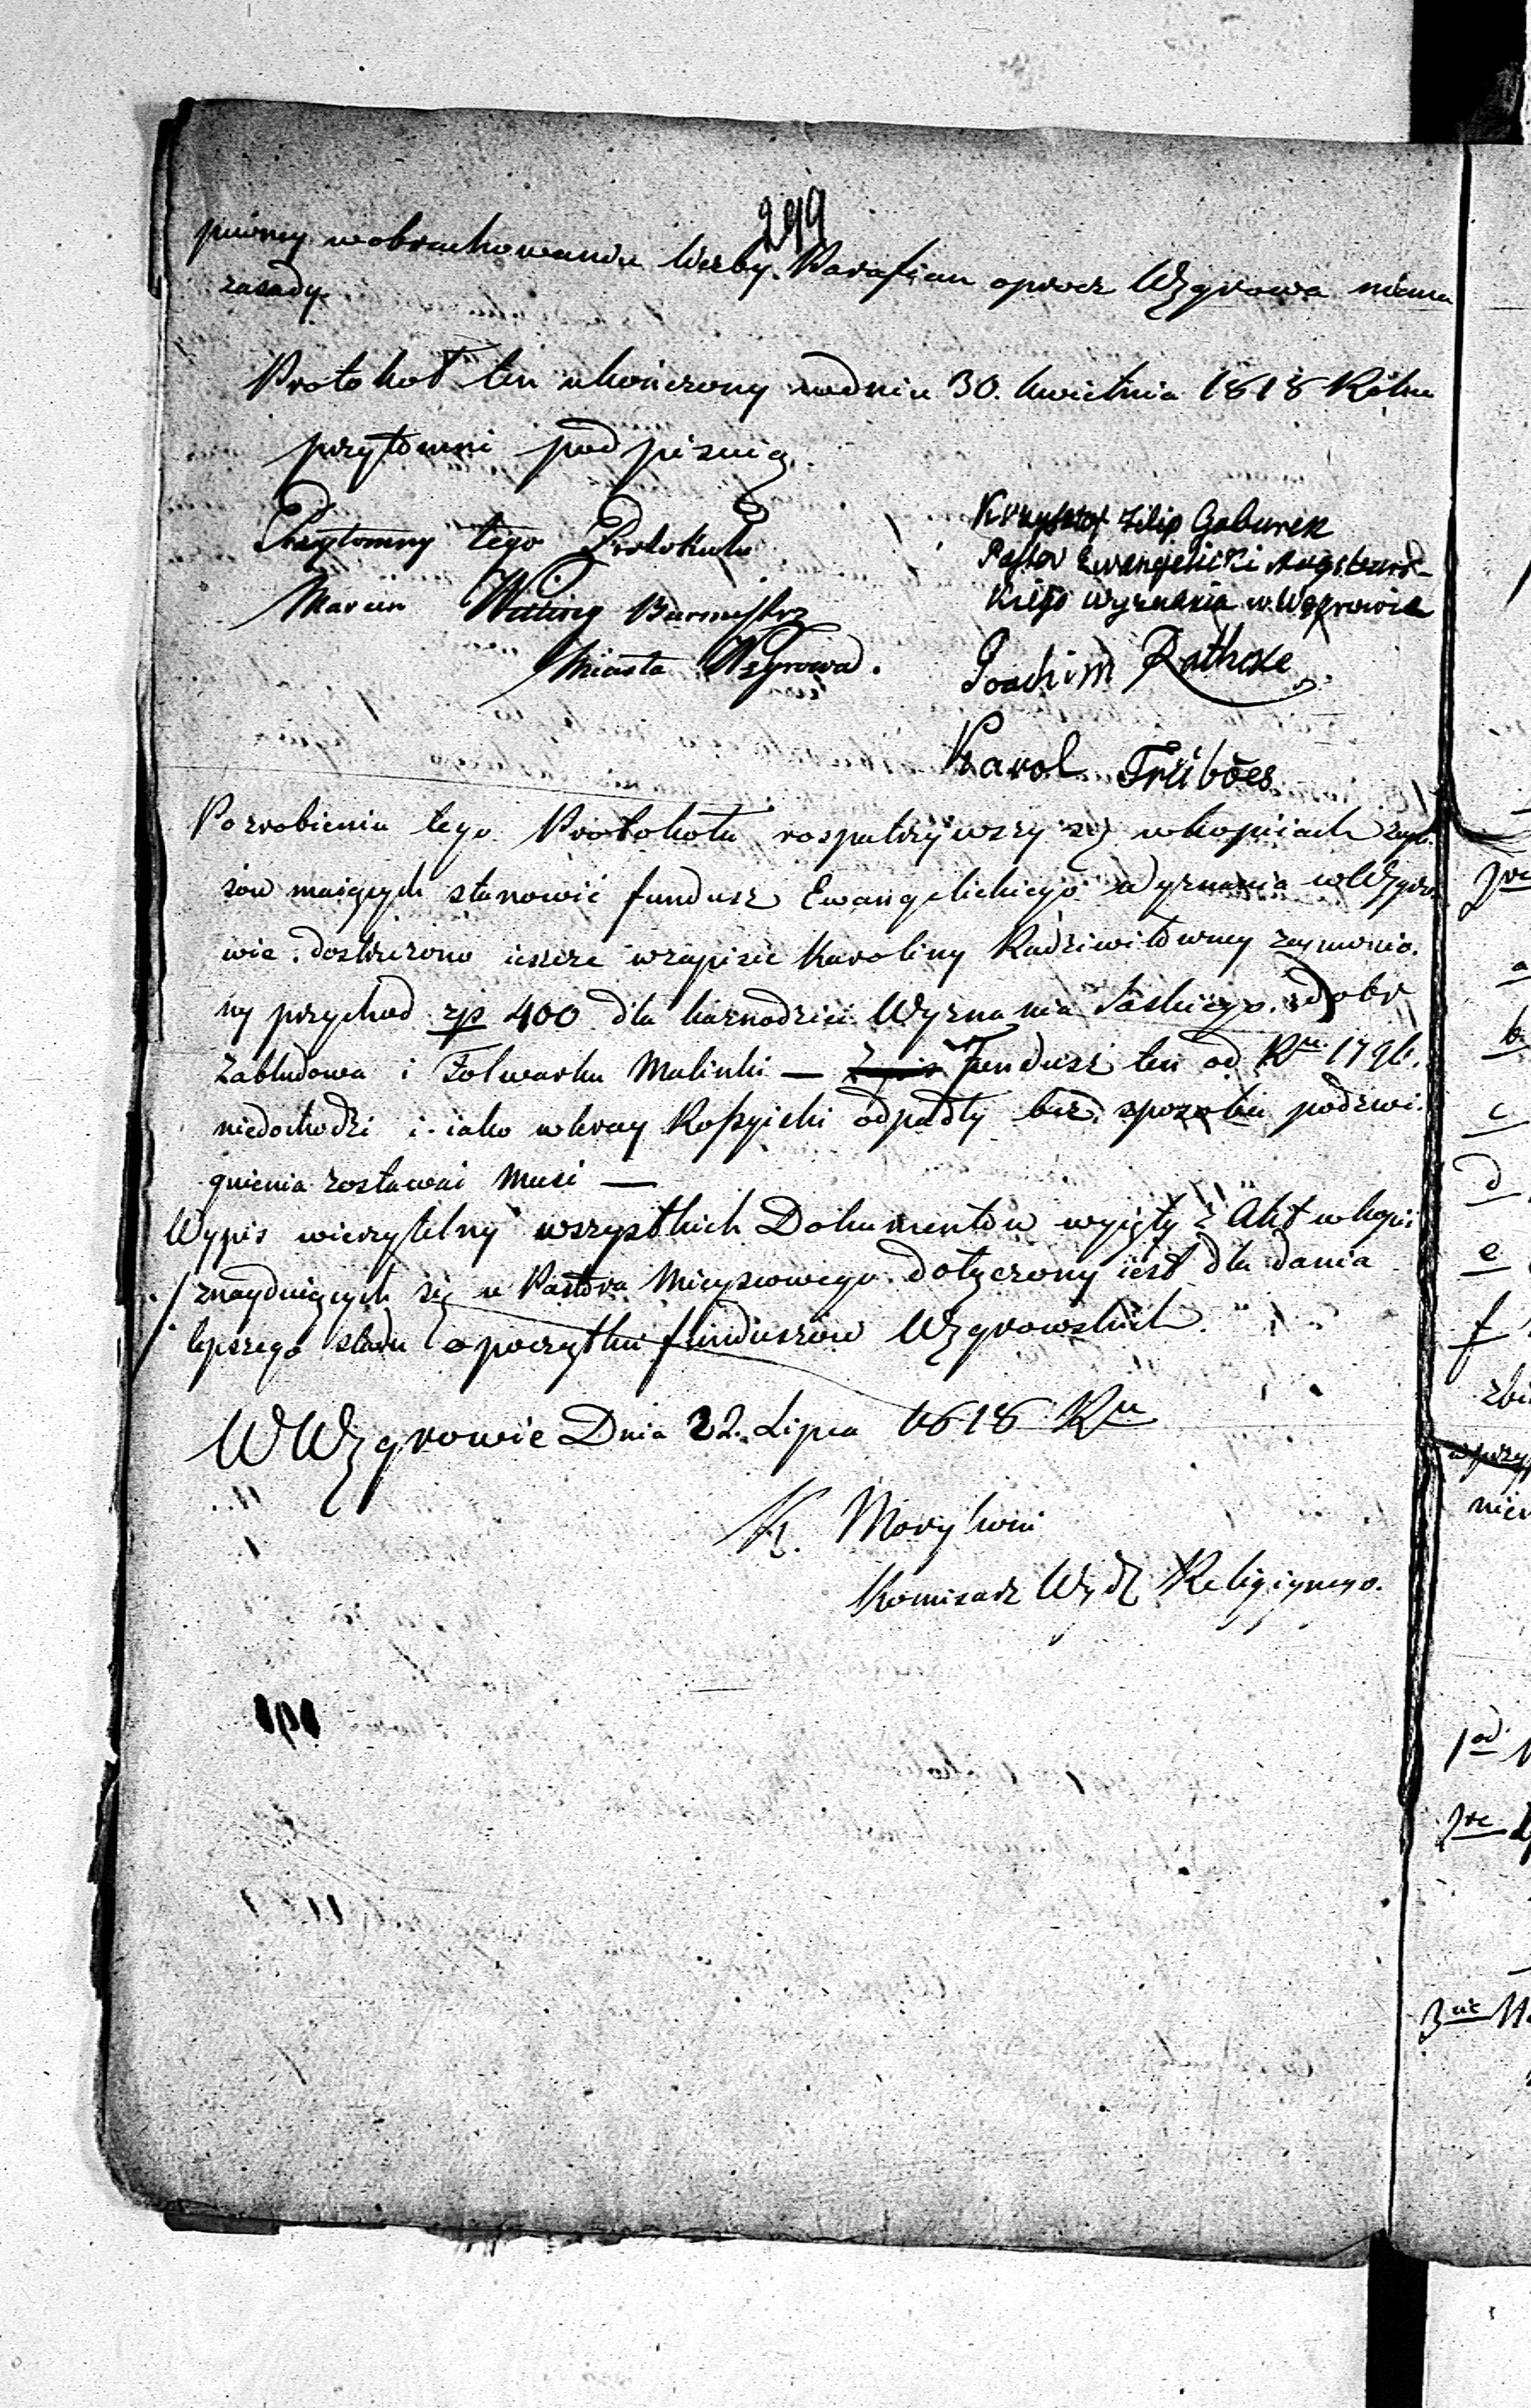 299
pewney w obrachowaniu liczby Parafian oprocz Węgrowa niema
zasady.
Protokoł ten ukończony w dniu 30. kwietnia 1818 Roku
przytomni podpisuią.
Przytomny tego Protokułu
Marcin Burmistrz
Miasta Węgrowa.
Krzysztof Filip Gaburek
Pastor Ewangelicki Augsburs-
kiego Wyznania w Węgrowie
Joachim Rathcke
Karol Trübões
Po zrobieniu tego Protokołu rospatrzywszy się w kopiiach zapi-
sow maiących stanowić fundusz Ewangelickiego Wyznania w Węgro-
wie. dostrzeżono ieszcze w zapisie Karoliny Radziwiłowney zaymonio-
ny przychod zp 400 dla kaznodziei Wyznania Saskiego. z Dobr
Zabłudowa i Folwarku Malinki — Fundusz ten od Ru 1796.
niedochodzi i iako w kray Rossyiski odpadły bez sposobu podzwi-
gnienia zostawać musi —
Wypis wierzytelny wszystkich Dokumentow wyięty z Akt w kopii
znayduiących się u Pastora Mieyscowego dołączony iest dla dania
lepszego sladu o początku funduszow Węgrowskich.
W Węgrowie Dnia 22. Lipca 1818 Ru
Komisarz Wydz Religiynego.
1od
2re
3cie
a
b
c
d
e
f